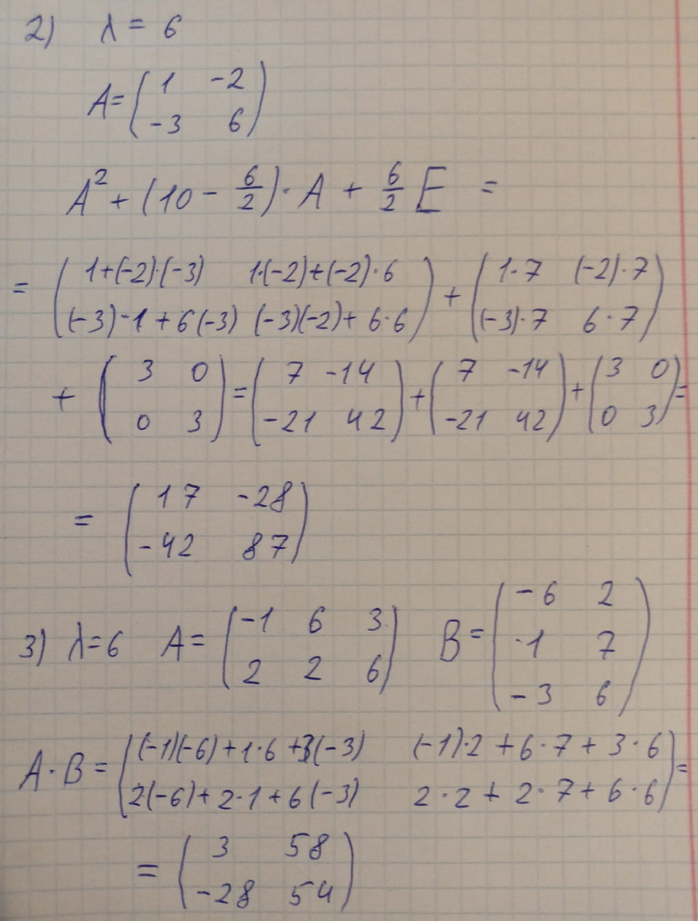 2) λ = 6
A = ( 1 -2
-3 6 )
A² + (10 - 6/2) · A + 6/2 E =
= ( 1+(-2)·(-3) 1·(-2)+(-2)·6
(-3)·1+6(-3) (-3)(-2)+6·6 ) + ( 1·7 (-2)·7
(-3)·7 6·7 )
+ ( 3 0
0 3 ) = ( 7 -14
-21 42 ) + ( 7 -14
-21 42 ) + ( 3 0
0 3 ) =
= ( 17 -28
-42 87 )
3) λ=6 A = ( -1 6 3
2 2 6 ) B = ( -6 2
·1 7
-3 6 )
A·B = ( (-1)(-6)+1·6+3(-3) (-1)·2+6·7+3·6
2(-6)+2·1+6(-3) 2·2+2·7+6·6 ) =
= ( 3 58
-28 54 )